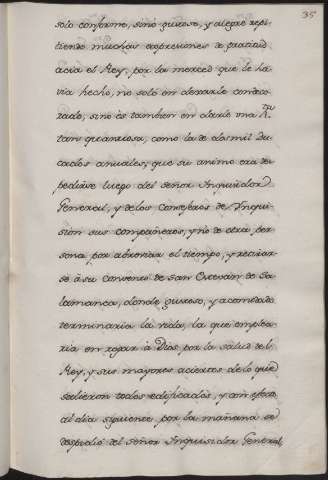 35
solo conforme, sino gustoso, y alegre repi-
tiendo muchas expresiones de gratitud
acia el Rey, por la merced que le ha-
via hecho, no solo en dexarle condeco-
rado, sino es tambien en darle una Rta
tan quantiosa, como la de dos mil du-
cados anuales; que su animo era des-
pedirse luego del señor Inquisidor
General, y de los Consejeros de Inqui-
sicion sus compañeros, y no de otra per-
sona por abreviar el tiempo, y retirar-
se à su convento de San Estevan de Sa-
lamanca, donde gustoso, y acomodado
terminaria la vida, la que emplea-
ria en rogar à Dios por la salud del
Rey, y sus mayores aciertos de lo que
salieron todos edificados, y con efecto
al dia siguiente por la mañana se
despidiò del señor Inquisidor General,